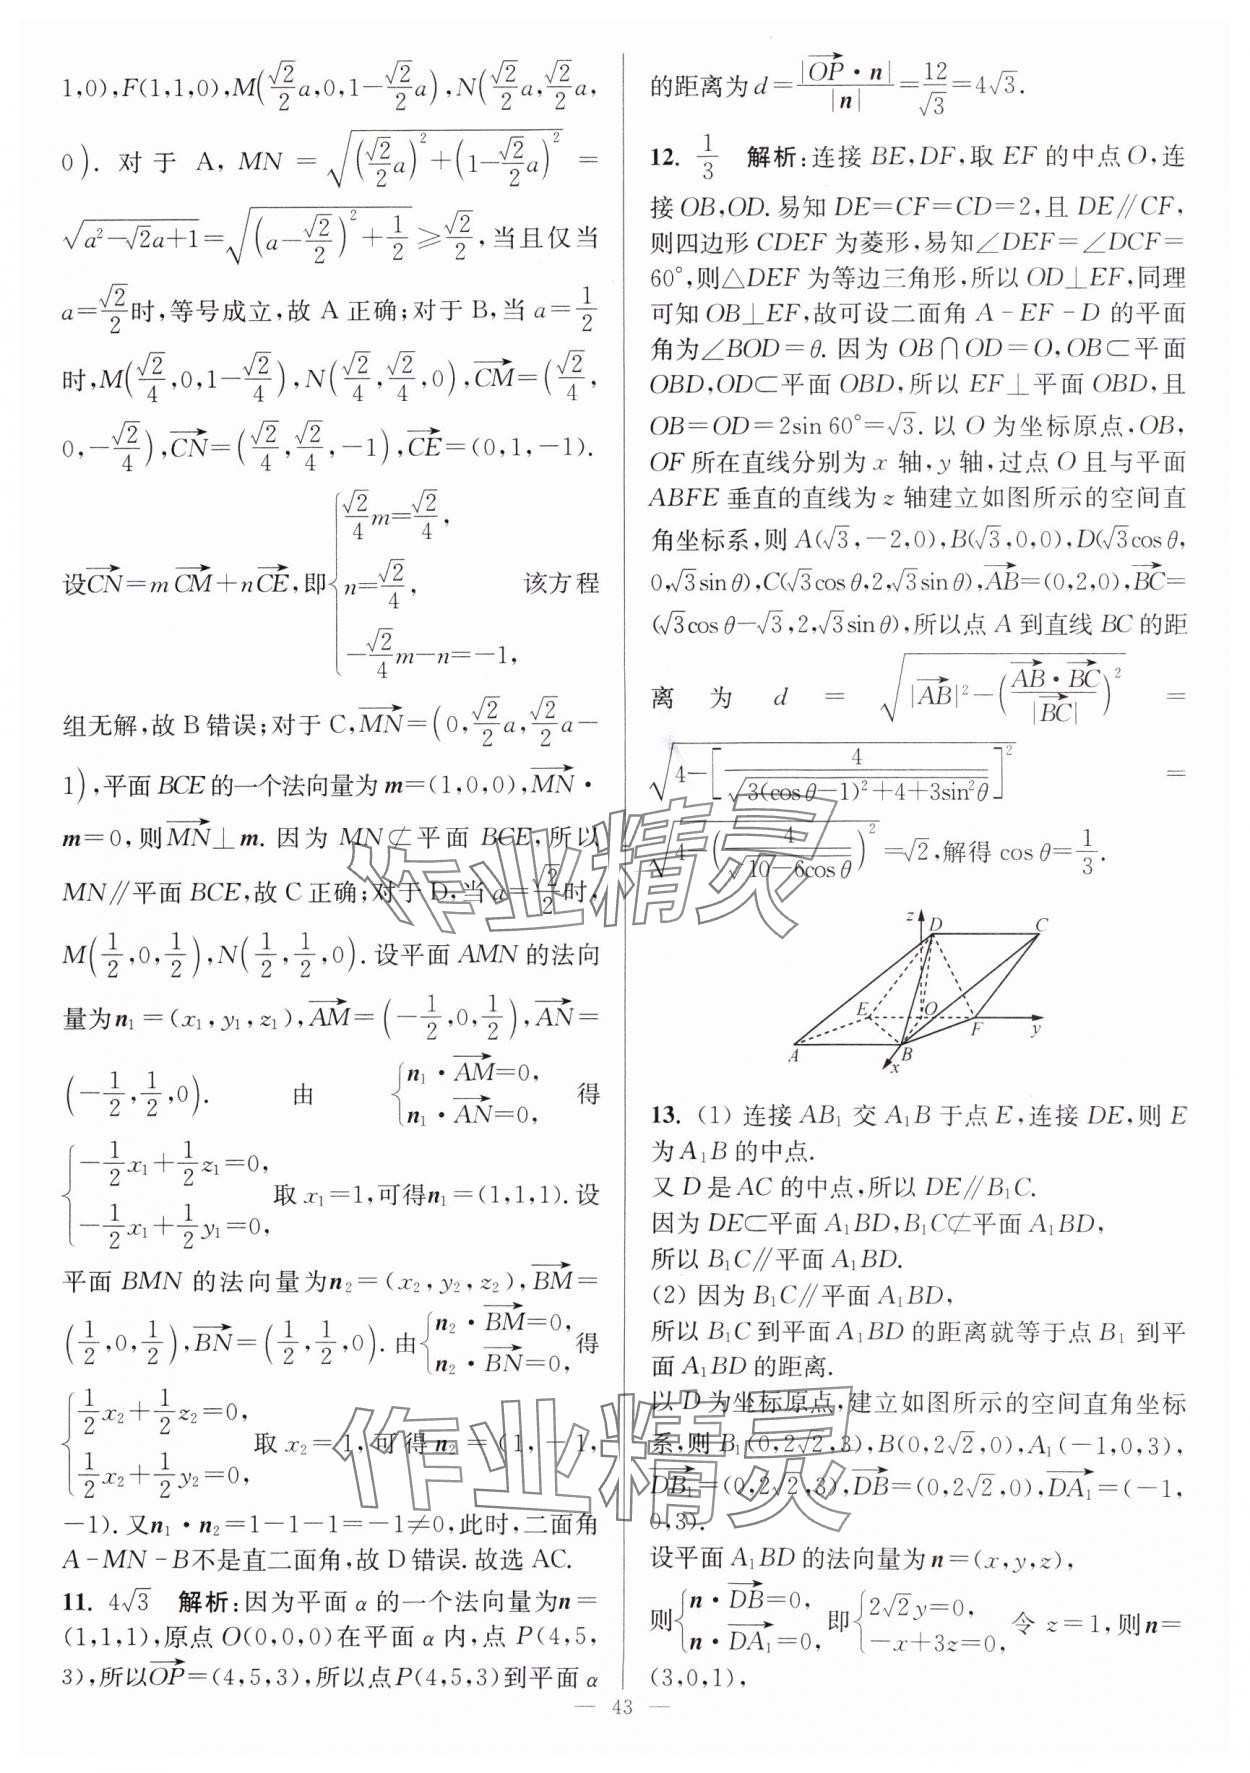 1,0),F(1,1,0),M(√2/2 a,0,1−√2/2 a),N(√2/2 a,√2/2 a,
0). 对于 A, MN = √((√2/2 a)²+(1−√2/2 a)²) =
√(a²−√2a+1)=√((a−√2/2)²+1/2)≥√2/2,当且仅当
a=√2/2时,等号成立,故 A 正确;对于 B,当 a=1/2
时,M(√2/4,0,1−√2/4),N(√2/4,√2/4,0),CM→=(√2/4,
0,−√2/4),CN→=(√2/4,√2/4,−1),CE→=(0,1,−1).
设CN→=mCM→+nCE→,即{√2/4 m=√2/4, n=√2/4, −√2/4 m−n=−1, 该方程
组无解,故 B 错误;对于 C,MN→=(0,√2/2 a,√2/2 a−
1),平面 BCE 的一个法向量为 m=(1,0,0),MN→·
m=0,则MN→⊥m. 因为 MN⊄平面 BCE,所以
MN∥平面 BCE,故 C 正确;对于 D,当 a=√2/2时,
M(1/2,0,1/2),N(1/2,1/2,0). 设平面 AMN 的法向
量为n₁=(x₁,y₁,z₁),AM→=(−1/2,0,1/2),AN→=
(−1/2,1/2,0). 由 {n₁·AM→=0, n₁·AN→=0, 得
{−1/2 x₁+1/2 z₁=0, −1/2 x₁+1/2 y₁=0, 取 x₁=1,可得n₁=(1,1,1). 设
平面 BMN 的法向量为n₂=(x₂,y₂,z₂),BM→=
(1/2,0,1/2),BN→=(1/2,1/2,0). 由{n₂·BM→=0, n₂·BN→=0, 得
{1/2 x₂+1/2 z₂=0, 1/2 x₂+1/2 y₂=0, 取 x₂=1,可得 n₂=(1,−1,
−1). 又n₁·n₂=1−1−1=−1≠0,此时,二面角
A-MN-B不是直二面角,故 D 错误. 故选 AC.
11. 4√3 解析:因为平面 α 的一个法向量为n=
(1,1,1),原点 O(0,0,0)在平面 α 内,点 P(4,5,
3),所以OP→=(4,5,3),所以点P(4,5,3)到平面 α
的距离为 d=|OP→·n|/|n|=12/√3=4√3.
12. 1/3 解析:连接 BE,DF,取 EF 的中点 O,连
接 OB,OD. 易知 DE=CF=CD=2,且 DE∥CF,
则四边形 CDEF 为菱形,易知∠DEF=∠DCF=
60°,则△DEF 为等边三角形,所以 OD⊥EF,同理
可知 OB⊥EF,故可设二面角 A-EF-D 的平面
角为∠BOD=θ. 因为 OB∩OD=O,OB⊂平面
OBD,OD⊂平面 OBD,所以 EF⊥平面 OBD,且
OB=OD=2sin 60°=√3. 以 O 为坐标原点,OB,
OF 所在直线分别为 x 轴,y 轴,过点 O 且与平面
ABFE 垂直的直线为 z 轴建立如图所示的空间直
角坐标系,则 A(√3,−2,0),B(√3,0,0),D(√3cos θ,
0,√3sin θ),C(√3cos θ,2,√3sin θ),AB→=(0,2,0),BC→=
(√3cos θ−√3,2,√3sin θ),所以点 A 到直线 BC 的距
离为 d = √(|AB→|²−(AB→·BC→/|BC→|)²) =
√(4−[4/√(3(cos θ−1)²+4+3sin²θ)]²) =
√(4−(4/√(10−6cos θ))²)=√2,解得 cos θ=1/3.
z D C
E O F y
A B x
13. (1) 连接 AB₁ 交 A₁B 于点 E,连接 DE,则 E
为 A₁B 的中点.
又 D 是 AC 的中点,所以 DE∥B₁C.
因为 DE⊂平面 A₁BD,B₁C⊄平面 A₁BD,
所以 B₁C∥平面 A₁BD.
(2) 因为 B₁C∥平面 A₁BD,
所以 B₁C 到平面 A₁BD 的距离就等于点 B₁ 到平
面 A₁BD 的距离.
以 D 为坐标原点,建立如图所示的空间直角坐标
系,则 B₁(0,2√2,3),B(0,2√2,0),A₁(−1,0,3),
DB₁→=(0,2√2,3),DB→=(0,2√2,0),DA₁→=(−1,
0,3).
设平面 A₁BD 的法向量为 n=(x,y,z),
则{n·DB→=0, n·DA₁→=0, 即{2√2y=0, −x+3z=0, 令 z=1,则 n=
(3,0,1),
— 43 —
作业精灵
作业精灵